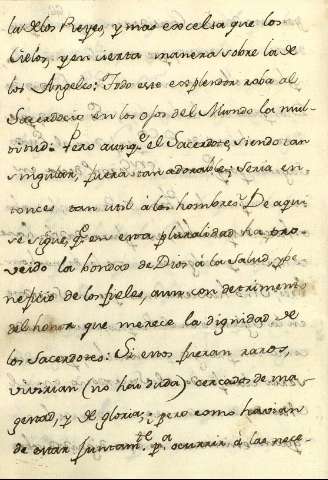 la de los Reyes, y mas excelsa que los
Cielos, y en cierta manera sobre la de
los Angeles: Todo este esplendor roba al
Sacerdocio en los ojos del Mundo la mul-
titud. Pero aunq.e el Sacerdote, siendo tan
singular, fuera tan adorable; seria en-
tonces tan util á los hombres? De aqui
se sigue, q.e en esta pluralidad ha pro-
veido la bondad de Dios á la Salud, y be-
neficio de los fieles, aun con detrimento
del honor que merece la dignidad de
los Sacerdotes: Si estos fueran raros,
vivirian (no hai duda) cercados de ma-
gestad, y de gloria; pero como havian
de estar juntam.te p.a ocurrir á las nece-